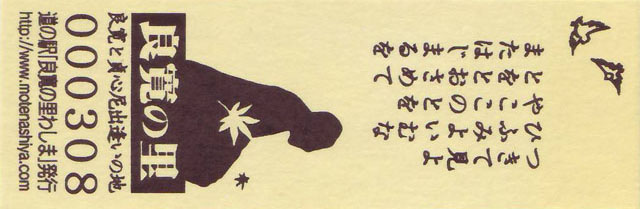 つきて見よ
ひふみよいむな
やここのとを
とをとおさめて
またはじまるを
良寛の里
良寛と貞心尼出逢いの地
000308
道の駅「良寛の里わしま」発行
http://www.motenashiya.com